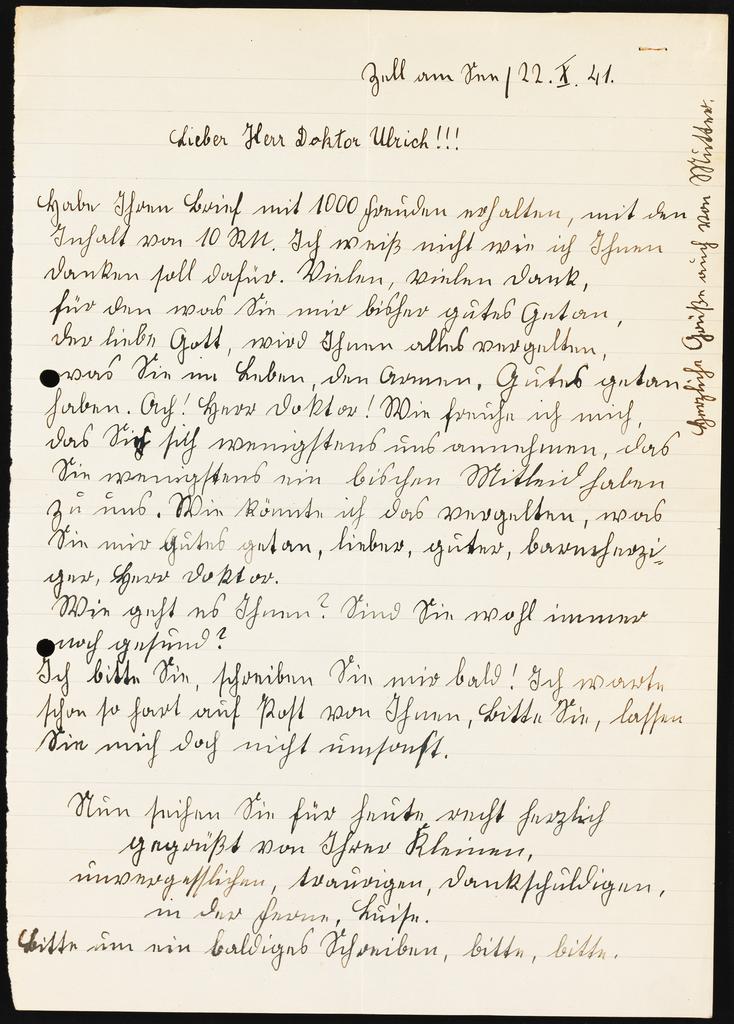 Zell am See / 22. X. 41.
Lieber Herr Doktor Ulrich!!!
Habe Ihren Brief mit 1000 Freuden erhalten, mit den
Inhalt von 10 RM. Ich weiß nicht wie ich Ihnen
danken soll dafür. Vielen, vielen Dank,
für den was Sie mir bisher gutes Getan,
der liebe Gott, wird Ihnen alles vergelten,
was Sie im Leben, den Armen, Gutes getan
haben. Ach! Herr Doktor! Wie freuhe ich mich,
das Sie sich wenigstens uns annehmen, das
Sie wenigstens ein bischen Mitleid haben
zu uns. Wie könnte ich das vergelten, was
Sie mir Gutes getan, lieber, guter, barmherzi-
ger, Herr Doktor.
Wie geht es Ihnen? Sind Sie wohl immer
noch gesund?
Ich bitte Sie, schreiben Sie mir bald! Ich warte
schon so hart auf Post von Ihnen, Bitte Sie, lassen
Sie mich doch nicht umsonst.
Nun seihen Sie für heute recht herzlich
gegrüßt von Ihrer Kleinen,
unvergesslichen, traurigen, dankschuldigen,
in der Ferne, Luise.
Bitte um ein baldiges Schreiben, bitte, bitte.
Herzliche Grüße auch von Mutter.